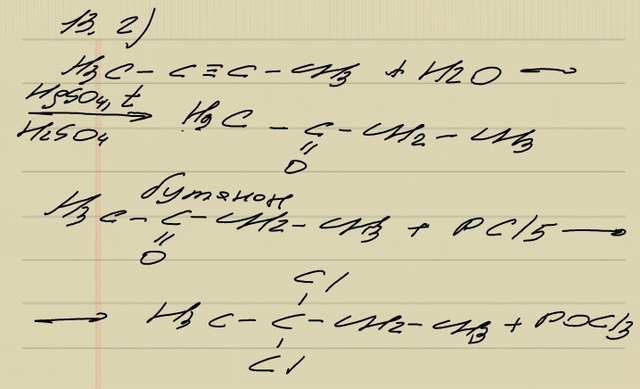 13. 2)
H3C - C ≡ C - CH3 + H2O
HgSO4, t
H2SO4
→ H3C - C - CH2 - CH3
||
O
бутанон
H3C - C - CH2 - CH3 + PCl5 →
||
O
Cl
→ H3C - C - CH2 - CH3 + POCl3
Cl